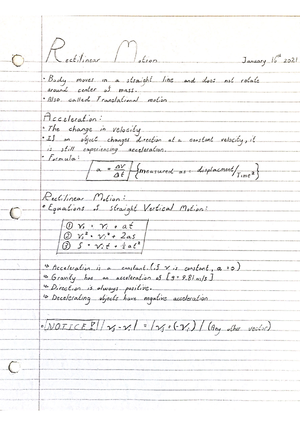 Rectilinear Motion January 16th 2021
• Body moves in a straight line and does not rotate
around center of mass.
• Also called Translational motion
Acceleration:
• The change in velocity
• If an object changes direction at a constant velocity, it
is still experiencing acceleration.
• Formula:
a = ΔV/Δt {measured as: displacment/Time²}
Rectilinear Motion:
• Equations of straight Vertical Motion:
① Vf = Vi + at
② Vf² = Vi² + 2as
③ S = Vit + ½at²
Acceleration is a constant. (if V is constant, a = 0)
Gravity has an acceleration of [g = 9.81 m/s]
Direction is always positive.
Decelerating objects have negative acceleration.